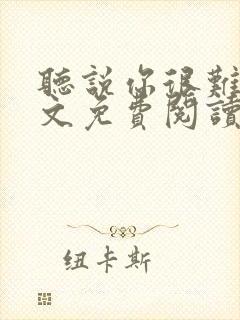 聽說你很難
文免費閱讀
纽卡斯